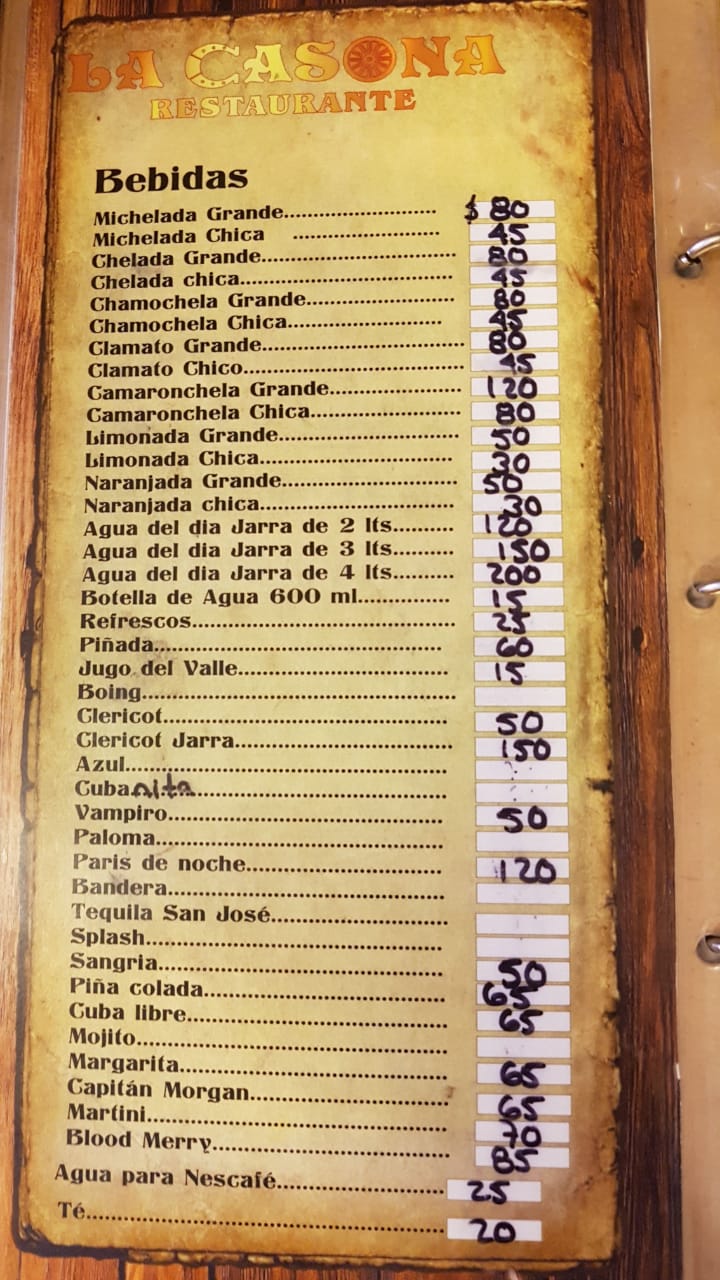 LA CASONA
RESTAURANTE
Bebidas
Michelada Grande.......................... $ 80
Michelada Chica ......................... 45
Chelada Grande................................. 80
Chelada chica.................................... 45
Chamochela Grande......................... 80
Chamochela Chica.......................... 45
Clamato Grande.................................. 80
Clamato Chico..................................... 45
Camaronchela Grande...................... 120
Camaronchela Chica......................... 80
Limonada Grande............................... 50
Limonada Chica................................. 30
Naranjada Grande.............................. 50
Naranjada chica................................. 30
Agua del dia Jarra de 2 lts.......... 120
Agua del dia Jarra de 3 lts.......... 150
Agua del dia Jarra de 4 lts.......... 200
Botella de Agua 600 ml............... 15
Refrescos............................................. 25
Piñada................................................. 60
Jugo del Valle.................................... 15
Boing.....................................................
Clericot................................................ 50
Clericot Jarra..................................... 150
Azul......................................................
Cubanita...........................................
Vampiro............................................... 50
Paloma.................................................
Paris de noche................................. 120
Bandera...............................................
Tequila San José..............................
Splash..................................................
Sangria................................................ 50
Piña colada......................................... 65
Cuba libre............................................ 65
Mojito....................................................
Margarita............................................. 65
Capitán Morgan................................. 65
Martini.................................................. 70
Blood Merry........................................ 85
Agua para Nescafé............................ 25
Té............................................................ 20